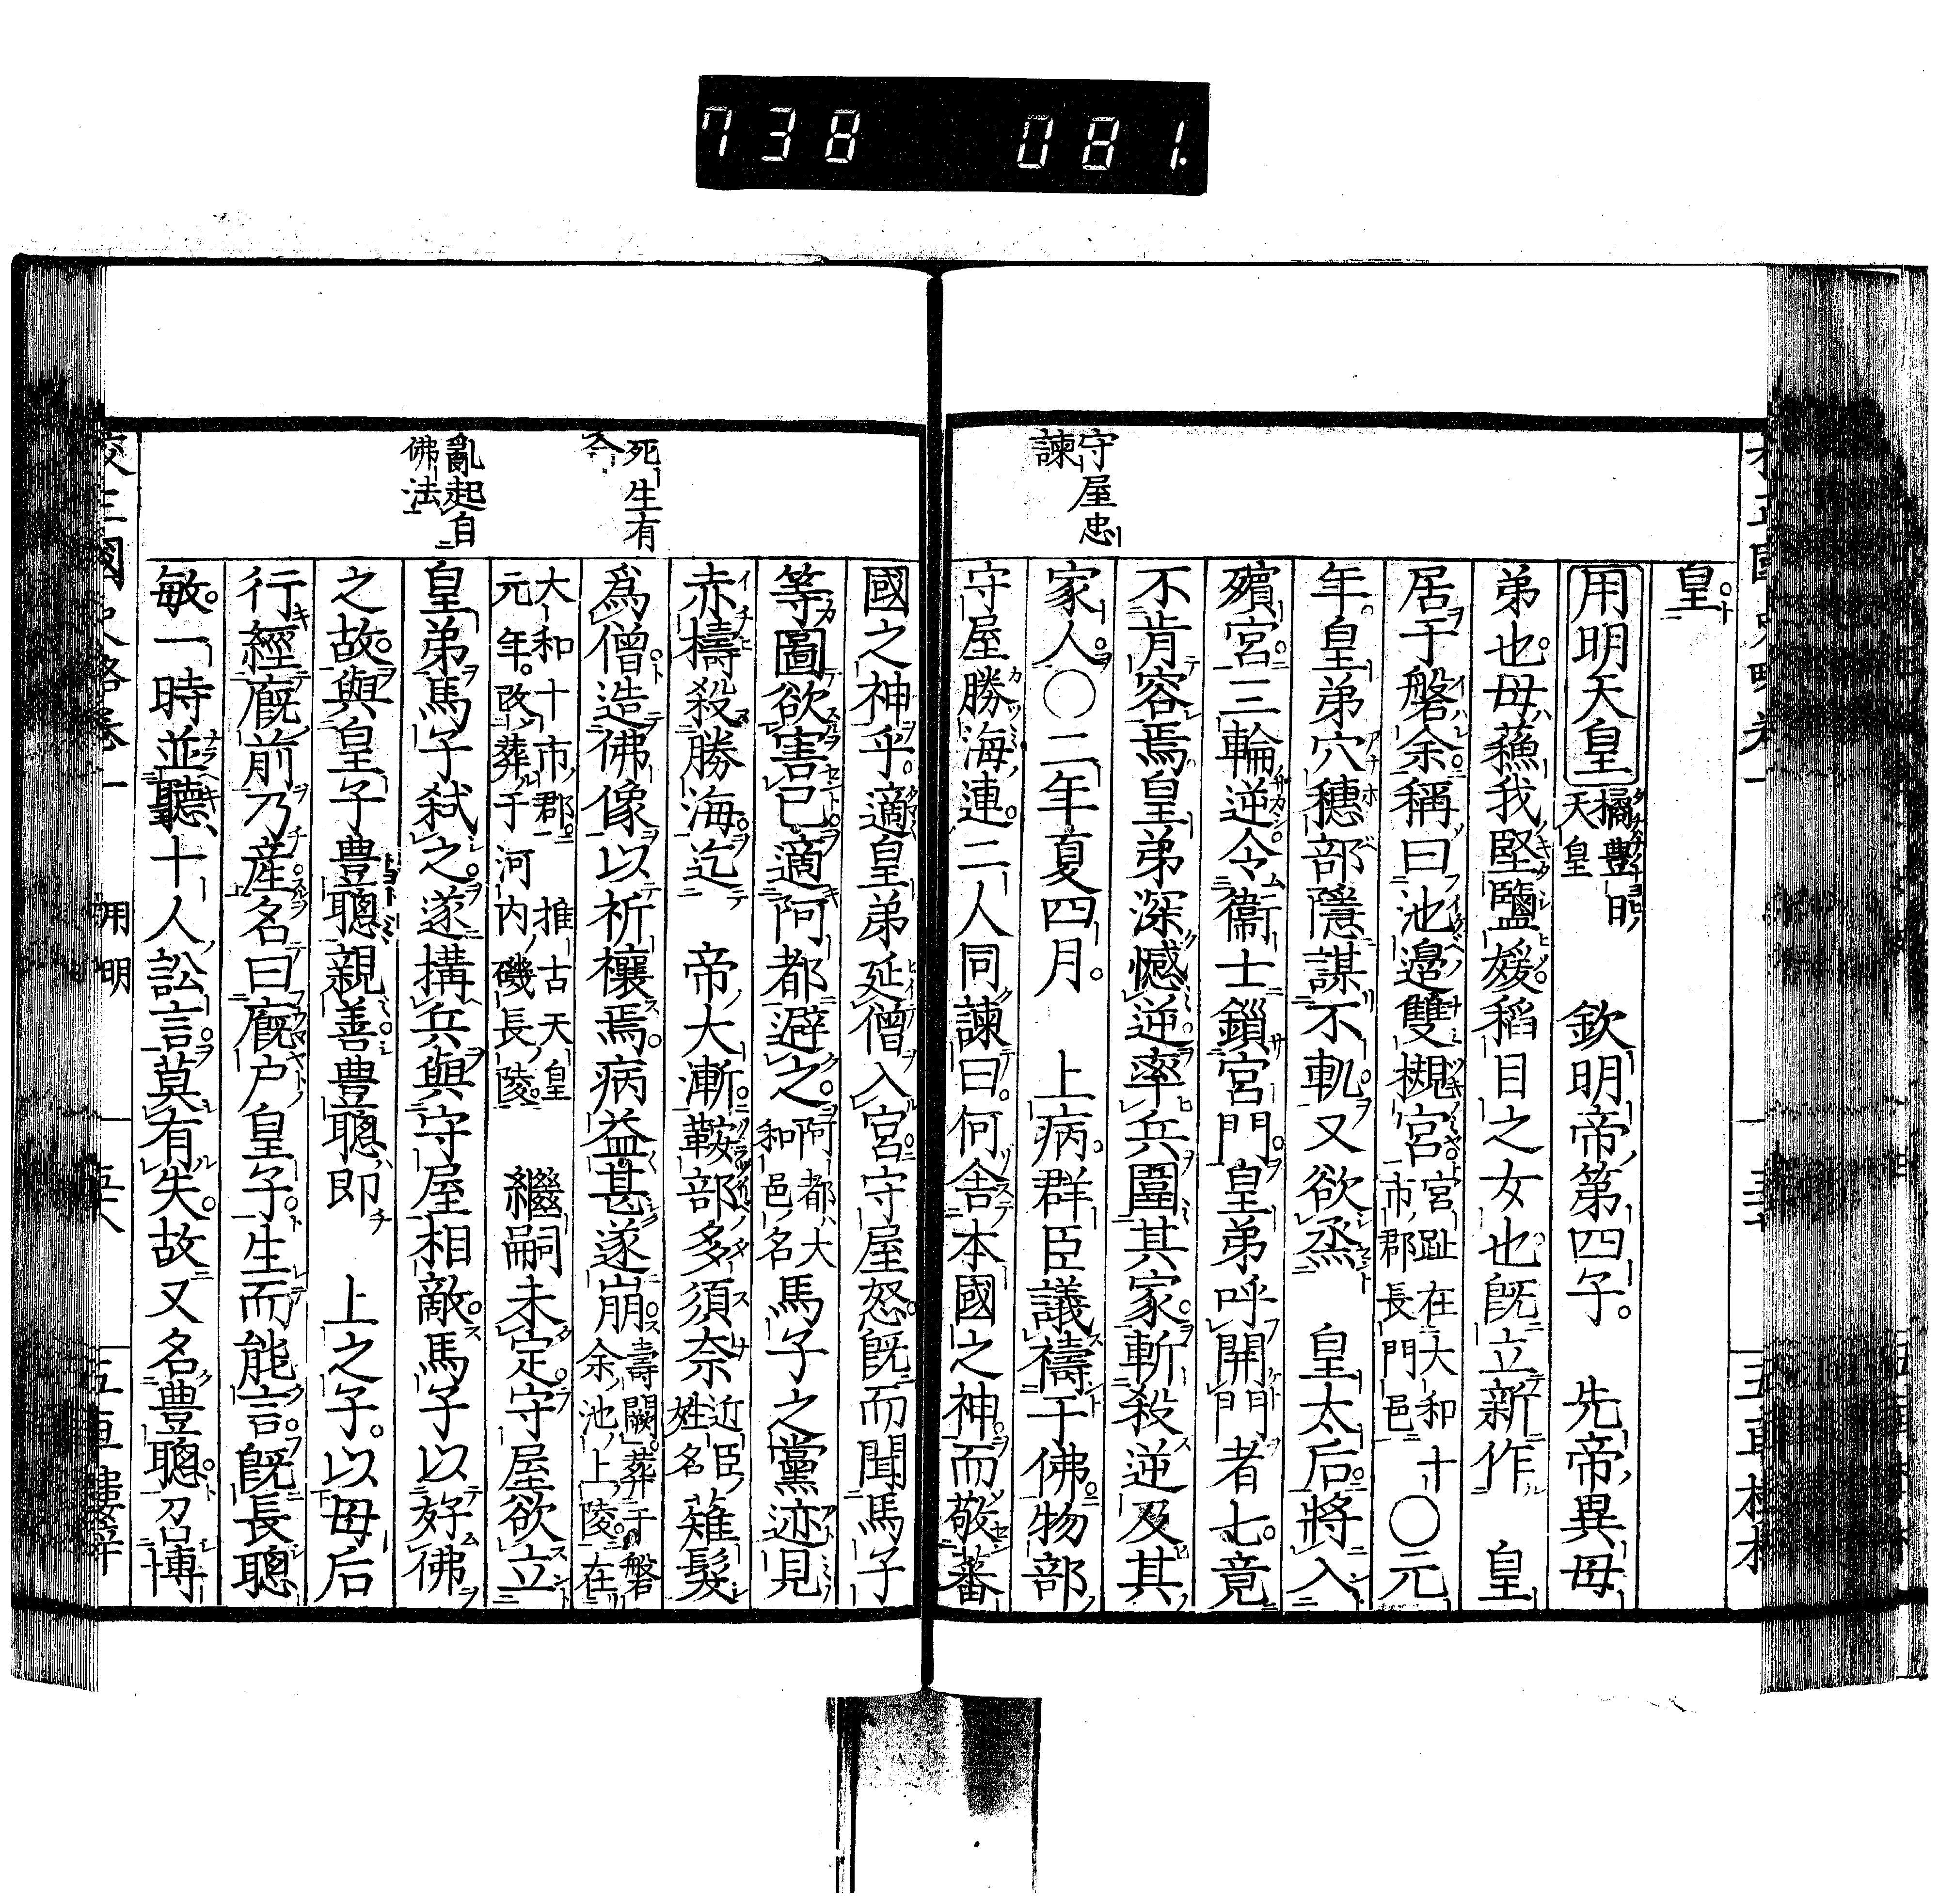 738 081.
守屋忠
諫
皇
用明天皇 橘豊日天皇 欽明帝第四子。先帝異母
弟也。母蘓我堅鹽媛。稻目之女也。既立新作 皇
居于磐余。稱曰池邉雙槻宮 宮趾在大和十市郡長門邑 〇元
年。皇弟穴穗部隱謀不軌。又欲烝 皇太后。將入
殯宮。三輪逆令衞士鎖宮門。皇弟呼開門者七。竟
不肯容焉。皇弟深憾逆。率兵圍其家。斬殺逆及其
家人。〇二年夏四月。 上病。群臣議禱于佛。物部
守屋勝海連。二人同諫曰。何舎本國之神。而敬蕃
死生有
命
亂起自
佛法
國之神乎。適皇弟延僧入宮。守屋怒。既而聞馬子
等圖欲害已。適阿都避之。阿都大和邑名 馬子之黨迹見
赤檮殺勝海。迄 帝大漸。鞍部多須奈 近臣姓名 薙髮
爲僧。造佛像以祈禳焉。病益甚。遂崩。壽闕。葬于磐余池上陵。在
大和十市郡。推古天皇元年。改葬于河内磯長陵。 繼嗣未定。守屋欲立
皇弟。馬子弑之。遂搆兵與守屋相敵。馬子以好佛
之故。與皇子豊聰親善。豊聰即 上之子。以母后
行經廐前乃産。名曰廐戸皇子。生而能言。既長聰
敏。一時並聽十人訟言。莫有失。故又名豊聰。召博
用明